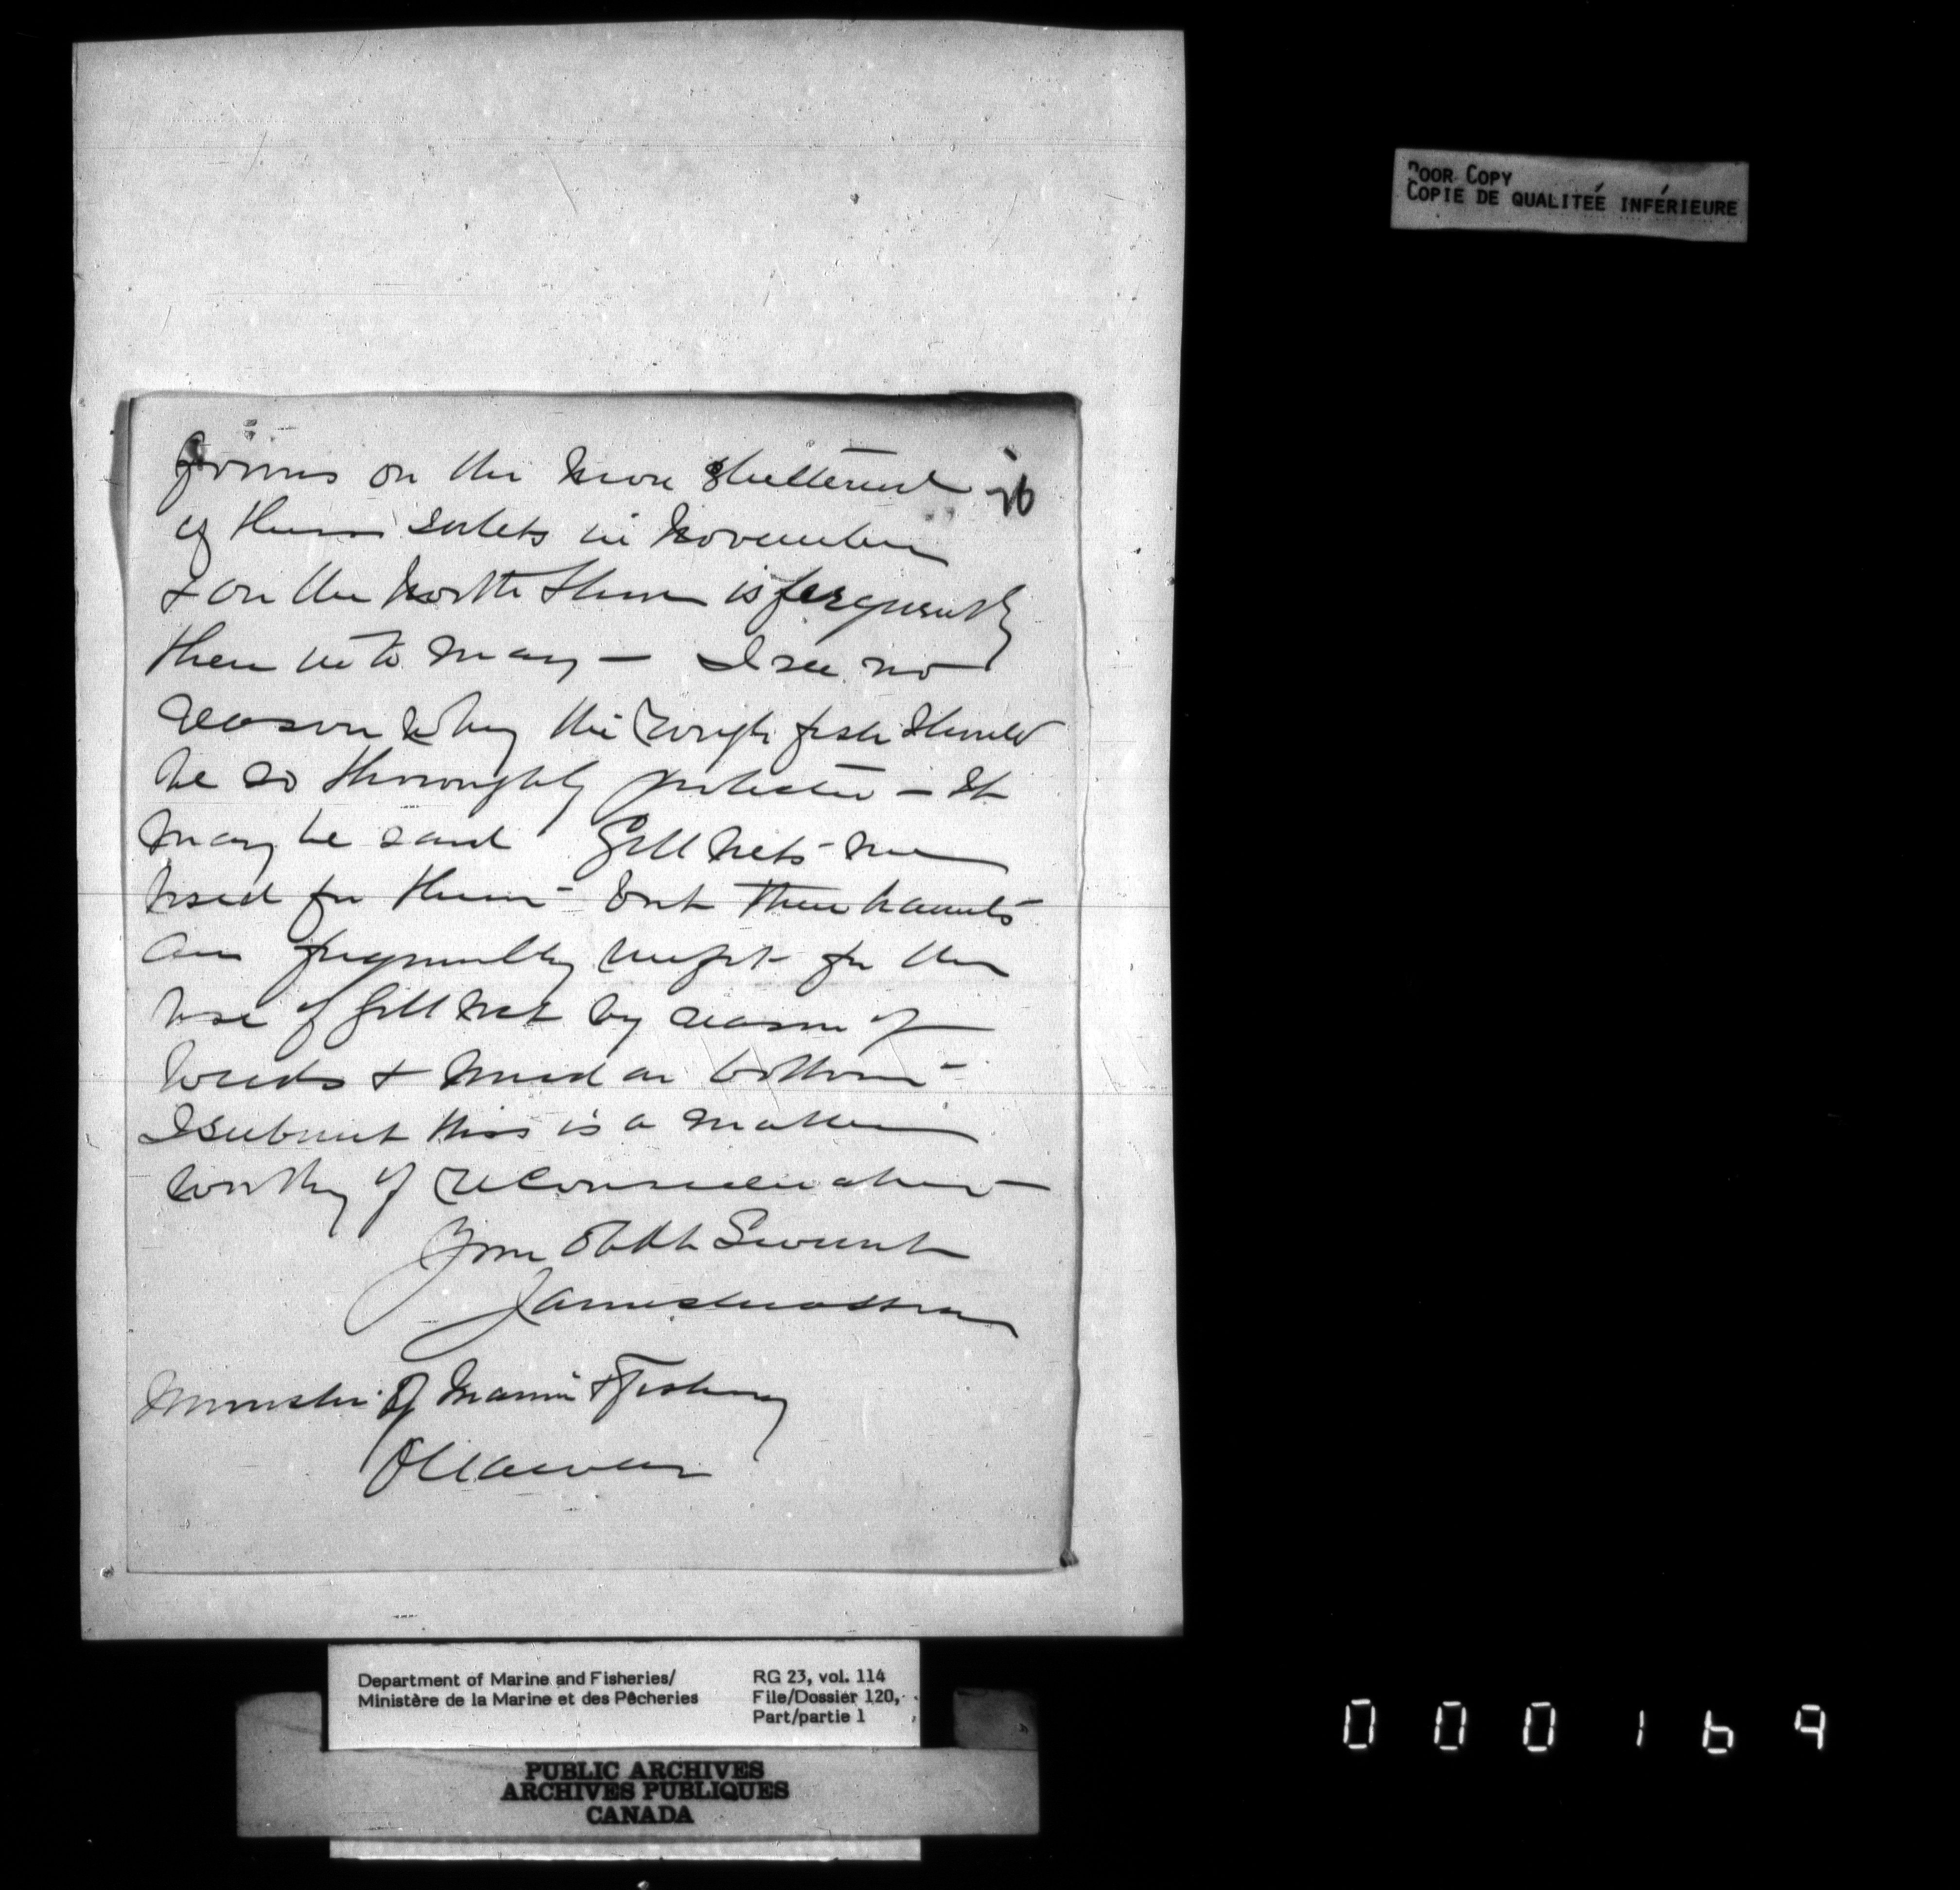 forms on the more sheltered 76
of these inlets in November
& on the North Shore is frequently
there up to May — I see no
reason why the Rough fish should
be so thoroughly protected — It
may be said Gill Nets
used for them - but their haunts
are frequently unfit for the
use of Gill Net by reason of
weeds & mud on bottom -
I submit this is a matter
worthy of reconsideration
Your Obdt Servant
James
Minister Of Marine & Fishery
Ottawa
POOR COPY
COPIE DE QUALITEÉ INFÉRIEURE
Department of Marine and Fisheries/
Ministère de la Marine et des Pêcheries
RG 23, vol. 114
File/Dossier 120,
Part/partie 1
PUBLIC ARCHIVES
ARCHIVES PUBLIQUES
CANADA
000169